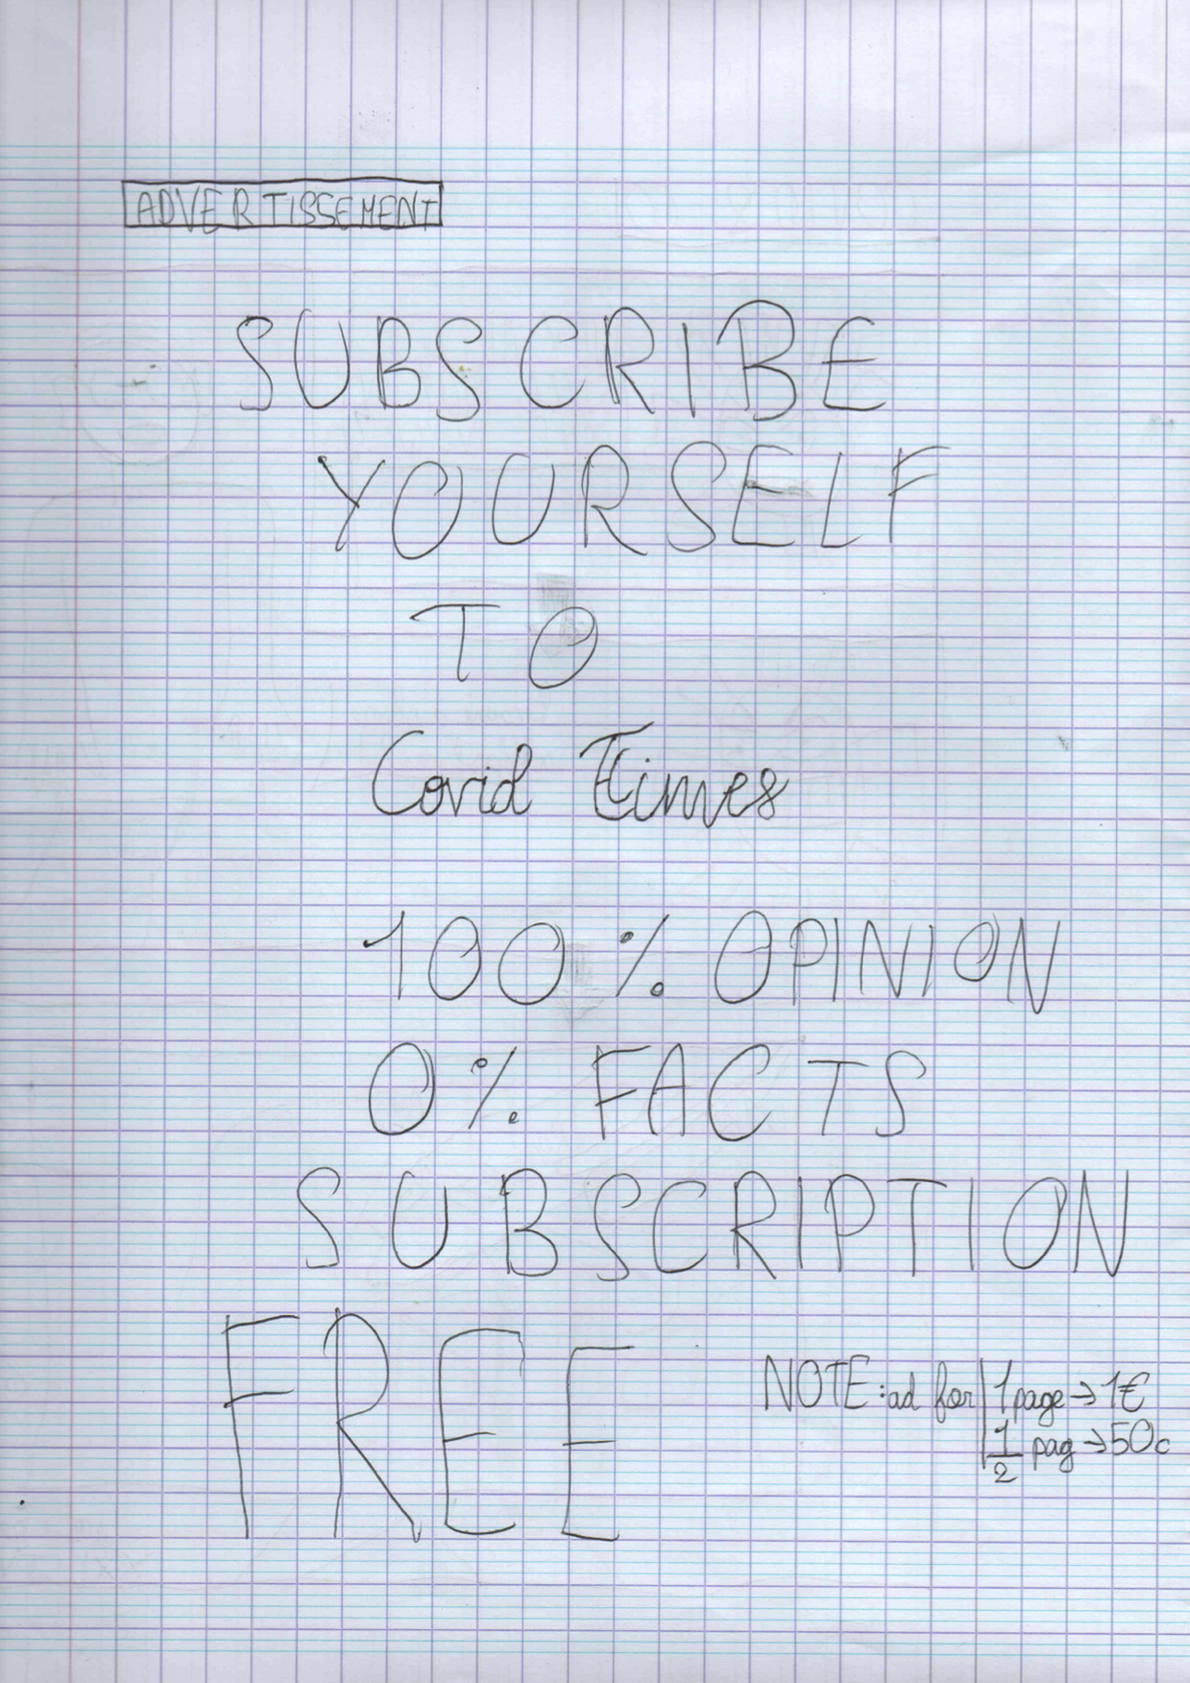 ADVERTISSEMENT
SUBSCRIBE
YOURSELF
TO
Covid Times
100% OPINION
0% FACTS
SUBSCRIPTION
FREE
NOTE: ad for 1 page → 1€
1/2 pag → 50c